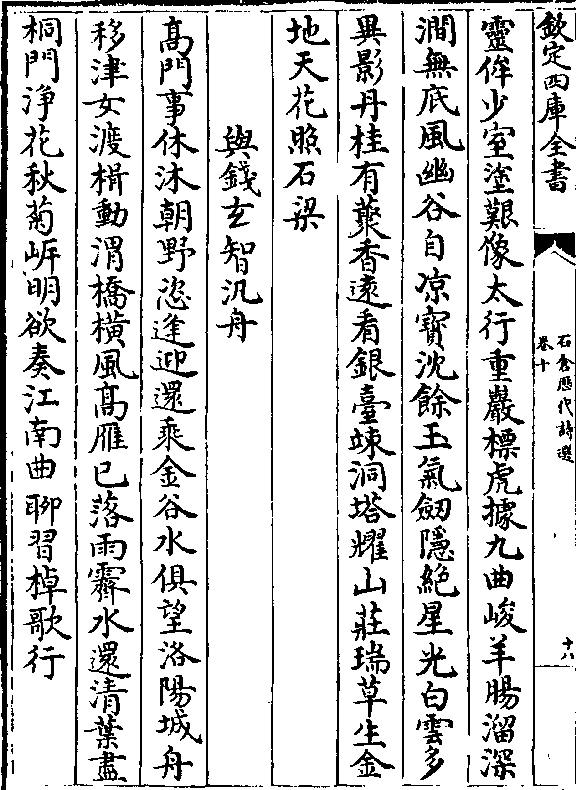 欽定四庫全書
石倉歷代詩選
卷十
十八
靈侔少室塗艱像太行重巖標虎據九曲峻羊腸溜深
澗無底風幽谷自凉寳沈餘玉氣劒隱絶星光白雲多
異影丹桂有藂香逺看銀臺竦洞塔耀山莊瑞草生金
地天花照石梁
與錢玄智汎舟
髙門事休沐朝野恣逢迎還乘金谷水俱望洛陽城舟
移津女渡楫動渭橋横風髙雁已落雨霽水還清葉盡
桐門浄花秋菊㟁明欲奏江南曲聊習棹歌行